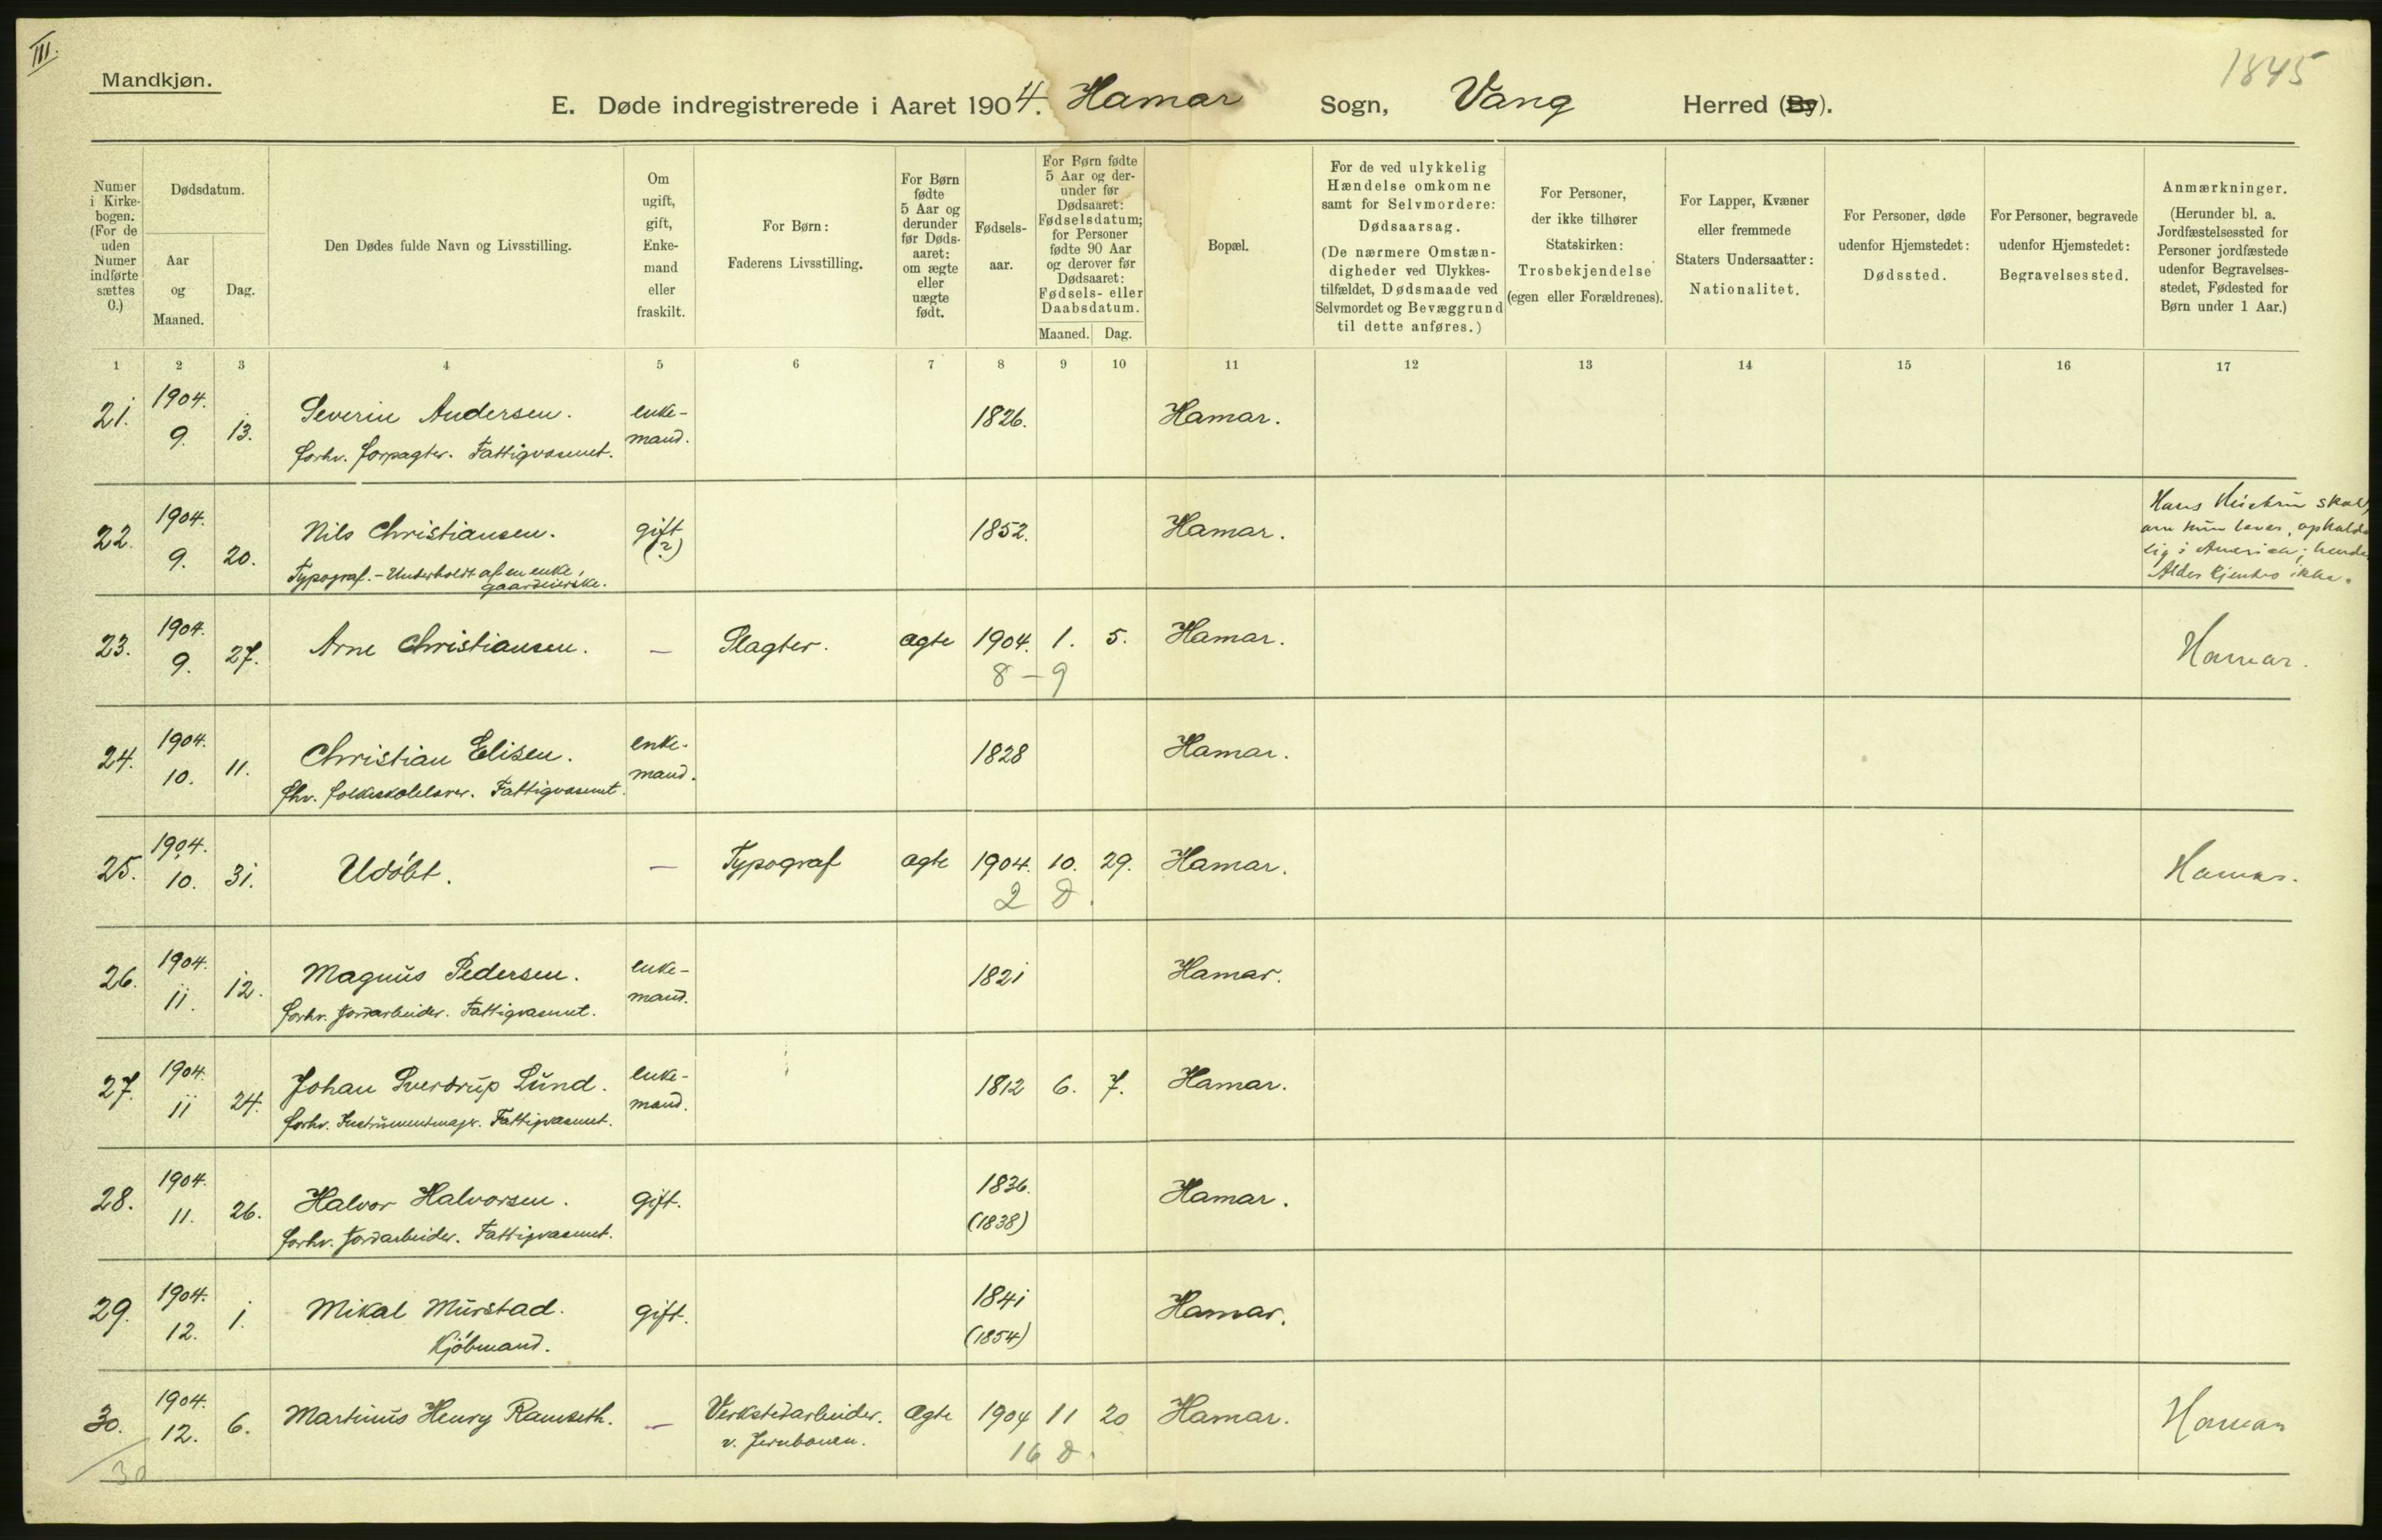 III.
Mandkjøn.
1845
E. Døde indregistrerede i Aaret 1904. Hamar Sogn, Vang Herred (By).
Numer i Kirkebogen. (For de uden Numer indførte sættes 0.)
Dødsdatum.
Aar og Maaned.
Dag.
Den Dødes fulde Navn og Livsstilling.
Om ugift, gift, Enkemand eller fraskilt.
For Børn: Faderens Livsstilling.
For Børn fødte 5 Aar og derunder før Dødsaaret: om ægte eller uægte født.
Fødselsaar.
For Børn fødte 5 Aar og derunder før Dødsaaret: Fødselsdatum; for Personer fødte 90 Aar og derover før Dødsaaret: Fødsels- eller Daabsdatum.
Maaned. Dag.
Bopæl.
For de ved ulykkelig Hændelse omkomne samt for Selvmordere: Dødsaarsag. (De nærmere Omstændigheder ved Ulykkestilfældet, Dødsmaade ved Selvmordet og Bevæggrund til dette anføres.)
For Personer, der ikke tilhører Statskirken: Trosbekjendelse (egen eller Forældrenes).
For Lapper, Kvæner eller fremmede Staters Undersaatter: Nationalitet.
For Personer, døde udenfor Hjemstedet: Dødssted.
For Personer, begravede udenfor Hjemstedet: Begravelsessted.
Anmærkninger. (Herunder bl. a. Jordfæstelsessted for Personer jordfæstede udenfor Begravelsesstedet, Fødested for Børn under 1 Aar.)
1 2 3 4 5 6 7 8 9 10 11 12 13 14 15 16 17
21. 1904. 9. 13. Severin Andersen. enkemand. 1826. Hamar.
forhv. forpagter. Fattigvæsenet.
22. 1904. 9. 20. Nils Christiansen. gift (?) 1852. Hamar.
Typograf. - Underholdt af en enke, gaardeierske.
Hans Hustru skal,
om hun lever, opholde
sig i Amerika; hendes
Alder kjendes ikke.
23. 1904. 9. 27. Arne Christiansen. — Slagter. ægte 1904. 1. 5. Hamar. Hamar.
8 - 9
24. 1904. 10. 11. Christian Elisen. enkemand. 1828 Hamar.
fhv. folkeskolelærer. Fattigvæsenet.
25. 1904. 10. 31. Udøbt. — Typograf ægte 1904. 10. 29. Hamar. Hamar.
2 D.
26. 1904. 11. 12. Magnus Pedersen. enkemand. 1821 Hamar.
forhv. Jordarbeider. Fattigvæsenet.
27. 1904. 11 24. Johan Sverdrup Lund. enkemand. 1812 6. 7. Hamar.
forhv. Instrumentmager. Fattigvæsenet.
28. 1904. 11. 26. Halvor Halvorsen. gift. 1836. (1838) Hamar.
forhv. Jordarbeider. Fattigvæsenet.
29. 1904. 12. 1. Mikal Murstad. gift. 1841 (1854) Hamar.
Kjøbmand.
30. 1904. 12. 6. Martinus Henry Ramseth. — Verkstedarbeider. ægte 1904 11 20 Hamar. Hamar
v. Jernbanen.
16 D.
30